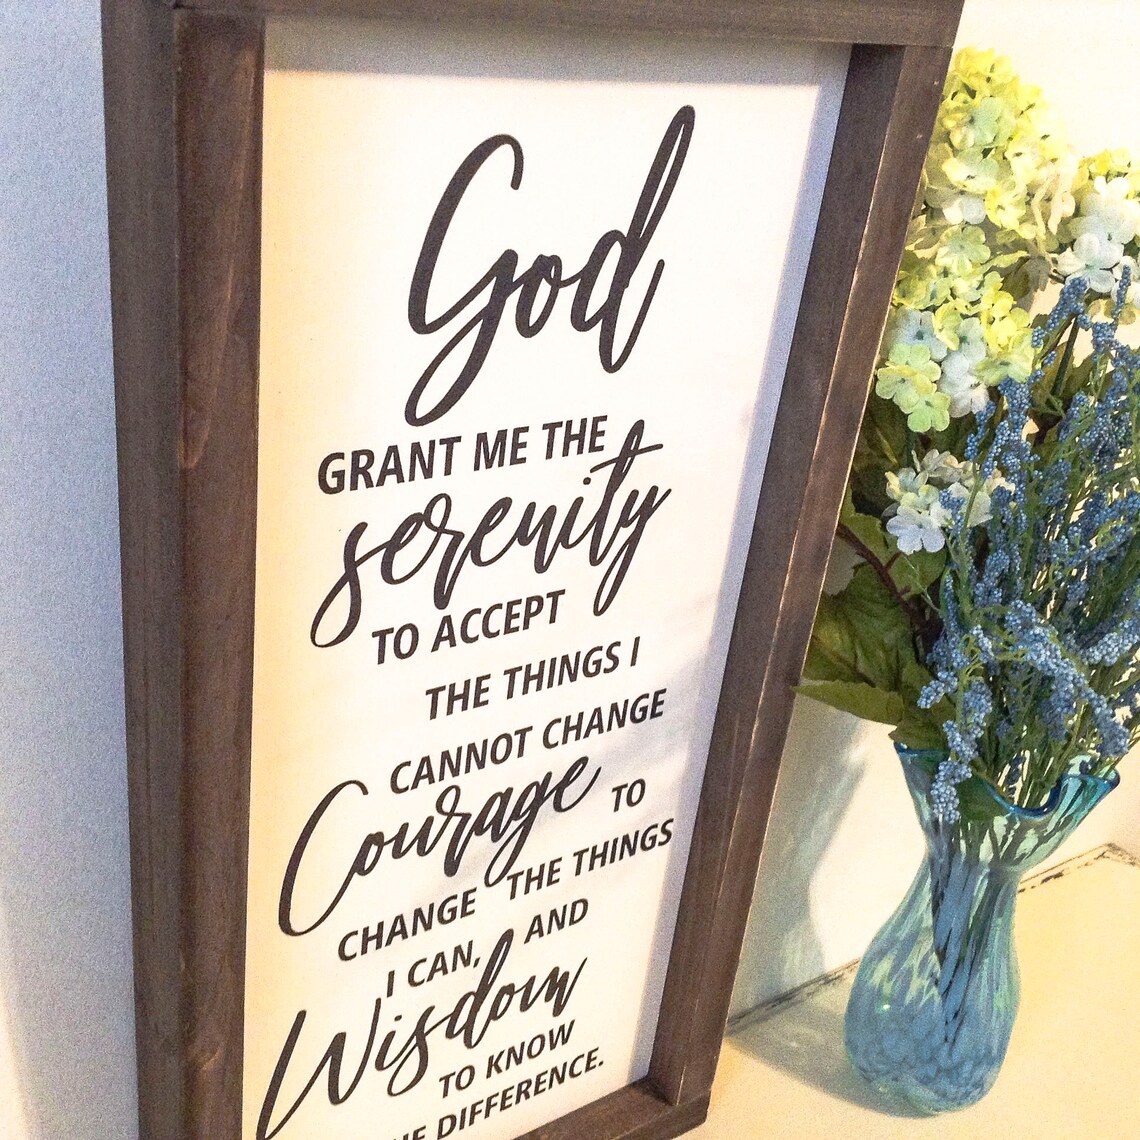 God
GRANT ME THE
serenity
TO ACCEPT
THE THINGS I
CANNOT CHANGE
Courage TO
CHANGE THE THINGS
I CAN, AND
Wisdom
TO KNOW
DIFFERENCE.